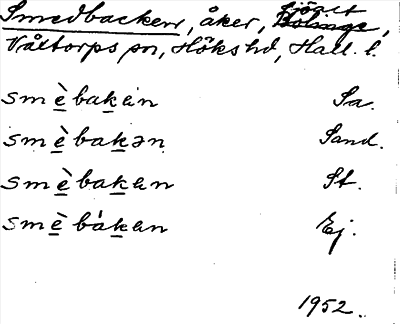 Smedbacken, åker,
Våltorps sn, Höks hd, Hall. l.
smèbakɘn Sa.
smèbakən Sand.
smèbakɘn St.
smèbákɘn Ej.
1952.